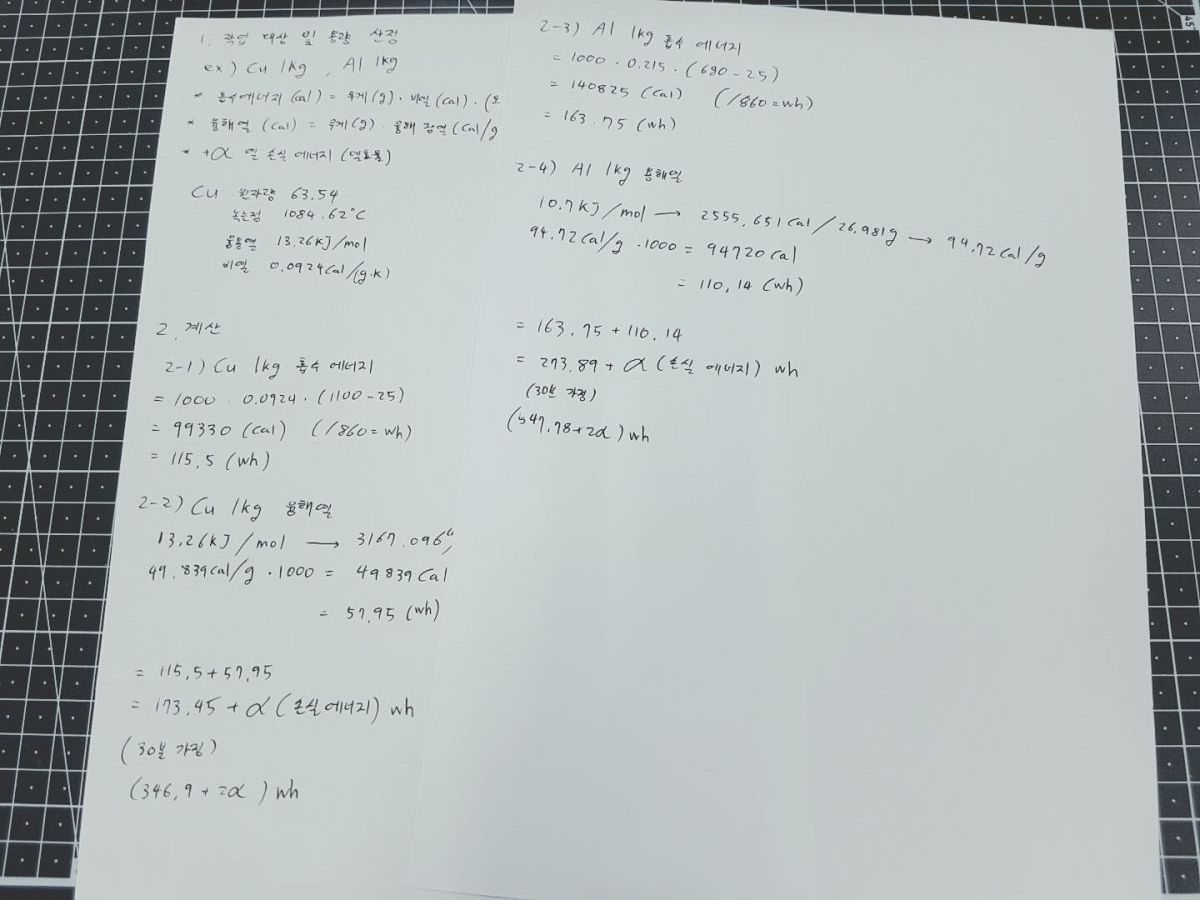 1. 작업 대상 및 용량 산정
ex) Cu 1kg, Al 1kg
* 흡수에너지 (cal) = 무게(g) · 비열(cal) · (온
* 융해열 (cal) = 무게(g) · 융해 잠열(cal/g
* +α 열 손실 에너지 (열효율)
Cu 원자량 63.54
녹는점 1084.62°C
용융열 13.26KJ/mol
비열 0.0924cal/(g·K)
2. 계산
2-1) Cu 1kg 흡수 에너지
= 1000 · 0.0924 · (1100-25)
= 99330 (cal) (/860=wh)
= 115.5 (wh)
2-2) Cu 1kg 융해열
13.26KJ/mol → 3167.096
49.839cal/g · 1000 = 49839 Cal
= 57.95 (wh)
= 115.5+57.95
= 173.45 + α (손실에너지) wh
(30분 가정)
(346.9 + 2α) wh
2-3) Al 1kg 흡수 에너지
= 1000 · 0.215 · (680-25)
= 140825 (cal) (/860=wh)
= 163.75 (wh)
2-4) Al 1kg 용해열
10.7KJ/mol → 2555.651cal/26.981g → 94.72cal/g
94.72cal/g · 1000 = 94720 cal
= 110.14 (wh)
= 163.75 + 110.14
= 273.89 + α (손실 에너지) wh
(30분 가정)
(547.78+2α) wh
45